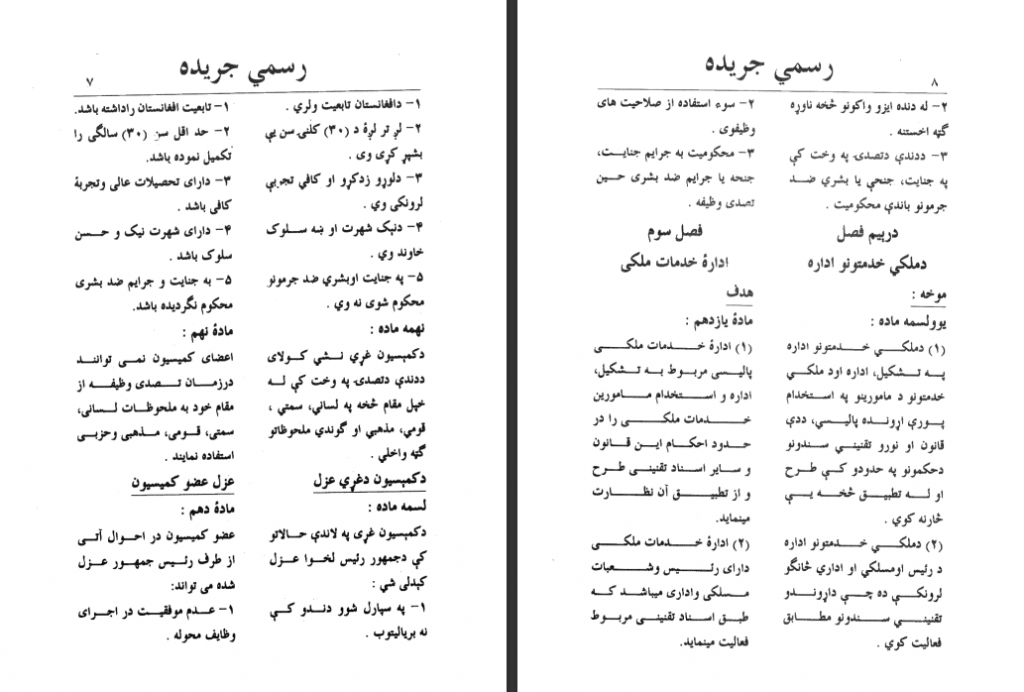 رسمي جریده
۷
۱- دافغانستان تابعیت ولري .
۲- لږ تر لږه د (۳۰) کلنۍ سن یې
بشپړ کړی وی .
۳- دلوړو زدکړو او کافي تجربې
لرونکی وي .
۴- دنېک شهرت او ښه سلوک
خاوند وي .
۵- په جنایت اوبشري ضد جرمونو
محکوم شوی نه وي .
نهمه ماده :
دکمېسیون غړي نشي کولای
ددندې دتصدۍ په وخت کې له
خپل مقام څخه په لساني، سمتي ،
قومي، مذهبي او گوندي ملحوظاتو
گټه واخلي .
دکمېسیون دغړي عزل
لسمه ماده :
دکمېسیون غړی په لاندې حالاتو
کې دجمهور رئیس لخوا عزل
کېدلی شي :
۱- په سپارل شوو دندو کې
نه بریالیتوب .
۱- تابعیت افغانستان راداشته باشد.
۲- حد اقل سن (۳۰) سالگی را
تکمیل نموده باشد.
۳- دارای تحصیلات عالی وتجربهٔ
کافی باشد .
۴- دارای شهرت نیک و حسن
سلوک باشد .
۵- به جنایت و جرایم ضد بشری
محکوم نگردیده باشد.
مادهٔ نهم :
اعضای کمیسیون نمی توانند
درزمان تصدی وظیفه از
مقام خود به ملحوظات لسانی،
سمتی، قومی، مذهبی وحزبی
استفاده نمایند .
عزل عضو کمیسیون
مادهٔ دهم :
عضو کمیسیون در احوال آتی
از طرف رئیس جمهور عزل
شده می تواند:
۱- عدم موفقیت در اجرای
وظایف محوله .
رسمي جریده
۸
۲- له دنده ایزو واکونو څخه ناوړه
گټه اخستنه .
۳- ددندې دتصدۍ په وخت کې
په جنایت، جنحې یا بشري ضد
جرمونو باندې محکومیت .
دریېم فصل
دملکي خدمتونو اداره
موخه :
یوولسمه ماده :
(۱) دملکي خدمتونو اداره
په تشکیل، اداره اود ملکي
خدمتونو د مامورینو په استخدام
پورې اړونده پالیسي، ددې
قانون او نورو تقنیني سندونو
دحکمونو په حدودو کې طرح
او له تطبیق څخه یې
څارنه کوي .
(۲) دملکي خدمتونو اداره
د رئیس اومسلکي او اداري څانگو
لرونکې ده چې داړوندو
تقنیني سندونو مطابق
فعالیت کوي .
۲- سوء استفاده از صلاحیت های
وظیفوی .
۳- محکومیت به جرایم جنایت،
جنحه یا جرایم ضد بشری حین
تصدی وظیفه .
فصل سوم
ادارهٔ خدمات ملکی
هدف
مادهٔ یازدهم :
(۱) ادارهٔ خدمات ملکی
پالیسی مربوط به تشکیل،
اداره و استخدام مامورین
خدمات ملکی را در
حدود احکام این قانون
و سایر اسناد تقنینی طرح
و از تطبیق آن نظارت
مینماید.
(۲) ادارهٔ خدمات ملکی
دارای رئیس وشعبات
مسلکی واداری میباشد که
طبق اسناد تقنینی مربوط
فعالیت مینماید.